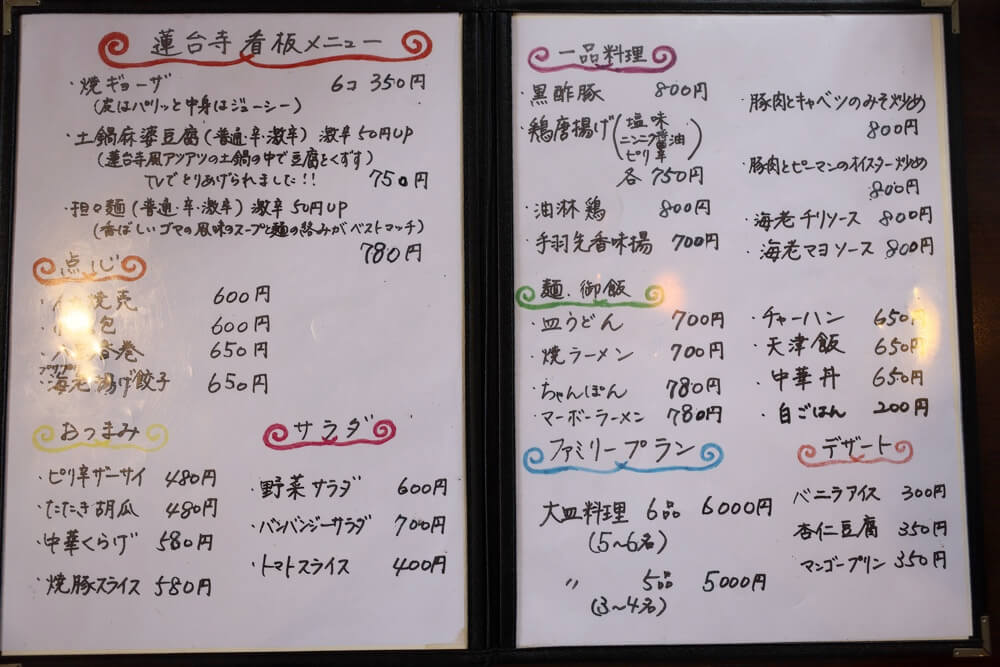 蓮台寺看板メニュー
・焼ギョーザ 6コ 350円
(皮はパリッと中身はジューシー)
・土鍋麻婆豆腐(普通・辛・激辛) 激辛50円UP
(蓮台寺風アツアツの土鍋の中で豆腐とくずす)
TVでとりあげられました!! 750円
・担々麺(普通・辛・激辛) 激辛50円UP
(香ばしいゴマの風味のスープと麺の絡みがベストマッチ)
780円
点心
焼売 600円
包 600円
巻 650円
プリプリ
・海老揚げ餃子 650円
おつまみ
・ピリ辛ザーサイ 480円
・たたき胡瓜 480円
・中華くらげ 580円
・焼豚スライス 580円
サラダ
・野菜サラダ 600円
・バンバンジーサラダ 700円
・トマトスライス 400円
一品料理
・黒酢豚 800円
鶏唐揚げ(塩味
ニンニク醤油
ピリ辛)
各750円
・油淋鶏 800円
・手羽先香味揚 700円
・豚肉とキャベツのみそ炒め
800円
・豚肉とピーマンのオイスター炒め
800円
・海老チリソース 800円
・海老マヨソース 800円
麺.御飯
・皿うどん 700円
・焼ラーメン 700円
・ちゃんぽん 780円
・マーボーラーメン 780円
・チャーハン 650円
・天津飯 650円
・中華丼 650円
・白ごはん 200円
ファミリープラン
大皿料理 6品 6000円
(5~6名)
〃 5品 5000円
(3~4名)
デザート
バニラアイス 300円
杏仁豆腐 350円
マンゴープリン 350円